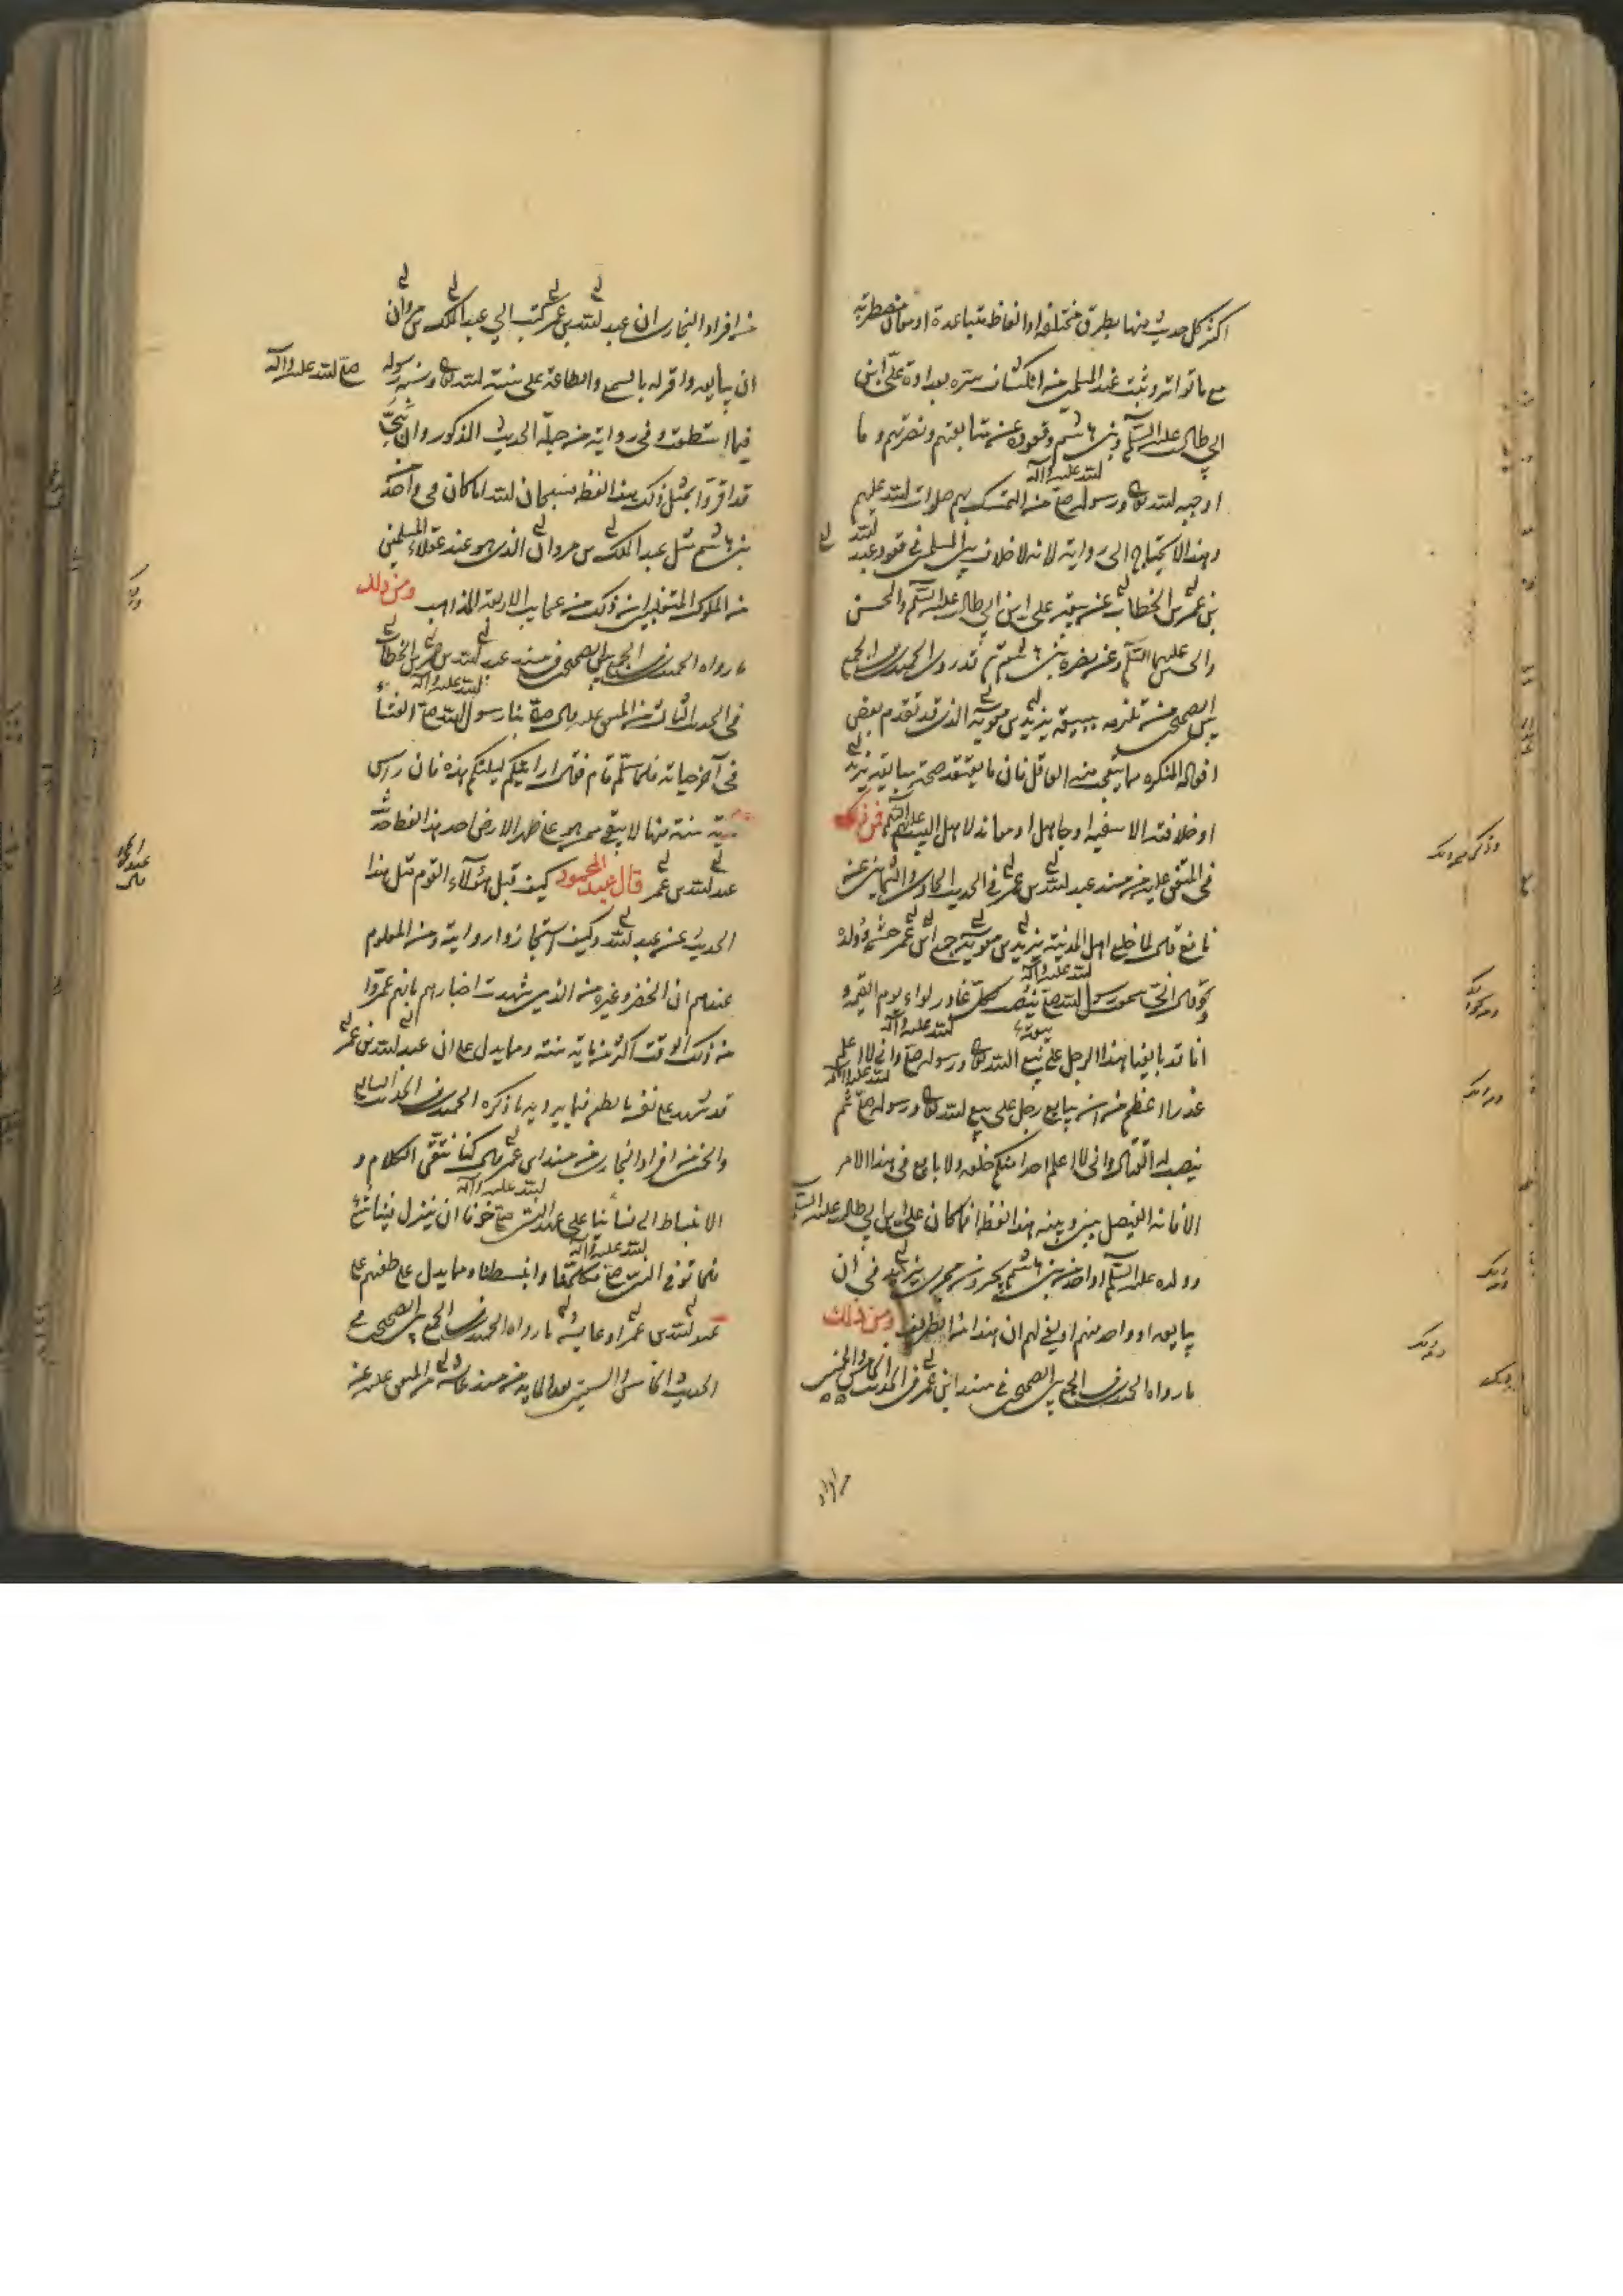 اكثر كل حديث منها بطرق مختلفة او الفاظ متباعدة او معان مضطربة
مع ما تواتر وثبت عند المسلمين من انكشاف ستره بعداوة علي ابن
ابي طالب عليه السلم وبني هاشم وقعوده عن متابعتهم ونصرتهم وما
اوجبه الله تعالى ورسوله ص من التمسك بهم صلوات الله عليهم
وهذا لا يحتاج الى رواية لانه لا خلاف بين المسلمين في قعود عبد الله
بن عمر بن الخطاب عن بيعة علي ابن ابي طالب عليه السلم والحسن
والحسين عليهما السلم وعن نصره بني هاشم ثم قد روى الحميدي في الجمع
بين الصحيحين تلزمه ببيعة يزيد بن معوية الذي قد تقدم بعض
افعاله المنكرة مما يقتضي العاقل فان ما يعتقد صحة مبايعة يزيد
او خلافته الا سفيه او جاهل او معاند لاهل البيت عليهم السلم فمن ذلك
في المتفق عليه من مسند عبد الله بن عمر في الحديث الحادي والثمانين عن
نافع قال لما خلع اهل المدينة يزيد بن معوية جمع ابن عمر حشمه وولده
وقال اني سمعت رسول الله ص ينصب لكل غادر لواء يوم القيمة و
انا قد بايعنا هذا الرجل على بيع الله تعالى ورسوله ص واني لا اعلم
غدرا اعظم من ان يبايع رجل على بيع الله تعالى ورسوله ص ثم
ينصب له القتال واني لا اعلم احدا منكم خلعه ولا بايع في هذا الامر
الا كانت الفيصل بيني وبينه هذا لفظه اما كان علي ابن ابي طالب عليه السلم
وولده عليه السلم او احد من بني هاشم يجرونه مجرى يزيد في ان
يبايعه او واحد منهم او يفي لهم ان هذا من الطريف ومن ذلك
ما رواه الحميدي في الجمع بين الصحيحين في مسند ابن عمر في الحديث الخامس والخمسين
من افراد البخاري ان عبد الله بن عمر كتب الي عبد الملك بن مروان
ان يبايعه واقر له بالسمع والطاعة على سنة الله تعالى وسنة رسوله صلى الله عليه وآله
فيما استطعت وفي رواية من جملة الحديث المذكور وان بني
قد اقروا بمثل ذلك هذا لفظه فسبحان الله اما كان في واحد من
بني هاشم مثل عبد الملك بن مروان الذي هو عند عقلاء المسلمين
من الملوك المتغلبين ان ذلك من عجايب الاربعة المذاهب ومن ذلك
ما رواه الحميدي في الجمع بين الصحيحين في مسند عبد الله بن عمر بن الخطاب
في الحديث الثالث من المتفق عليه قال صلى بنا رسول الله ص العشاء
في آخر حياته فلما سلم قام فقال ارايتكم ليلتكم هذه فان راس
مائة سنة منها لا يبقى ممن هو على ظهر الارض احد هذا لفظ حديث
عبد الله بن عمر قال عبد المحمود كيف قبل هؤلاء القوم مثل هذا
الحديث عن عبد الله وكيف استجازوا رواية ومن المعلوم
عندهم ان الخضر وغيره من الذين شهدت اخبارهم بانهم عمروا
من ذلك الوقت اكثر من مائة سنة ومما يدل على ان عبد الله بن عمر
قد شهد على نفسه بالطعن فيما يرويه ما ذكره الحميدي في الحديث السابع
والخمسين من افراد البخاري من مسند ابن عمر قال كنا نتقى الكلام و
الانبساط الى نسائنا على عهد النبي ص خوفا ان ينزل فينا شئ
فلما توفى النبي ص تكلمنا وانبسطنا ومما يدل على طعنهم على
عبد الله بن عمر او عايشة ما رواه الحميدي في الجمع بين الصحيحين في
الحديث الخامس والستين بعد المائة من مسند عايشة من المتفق عليه عن